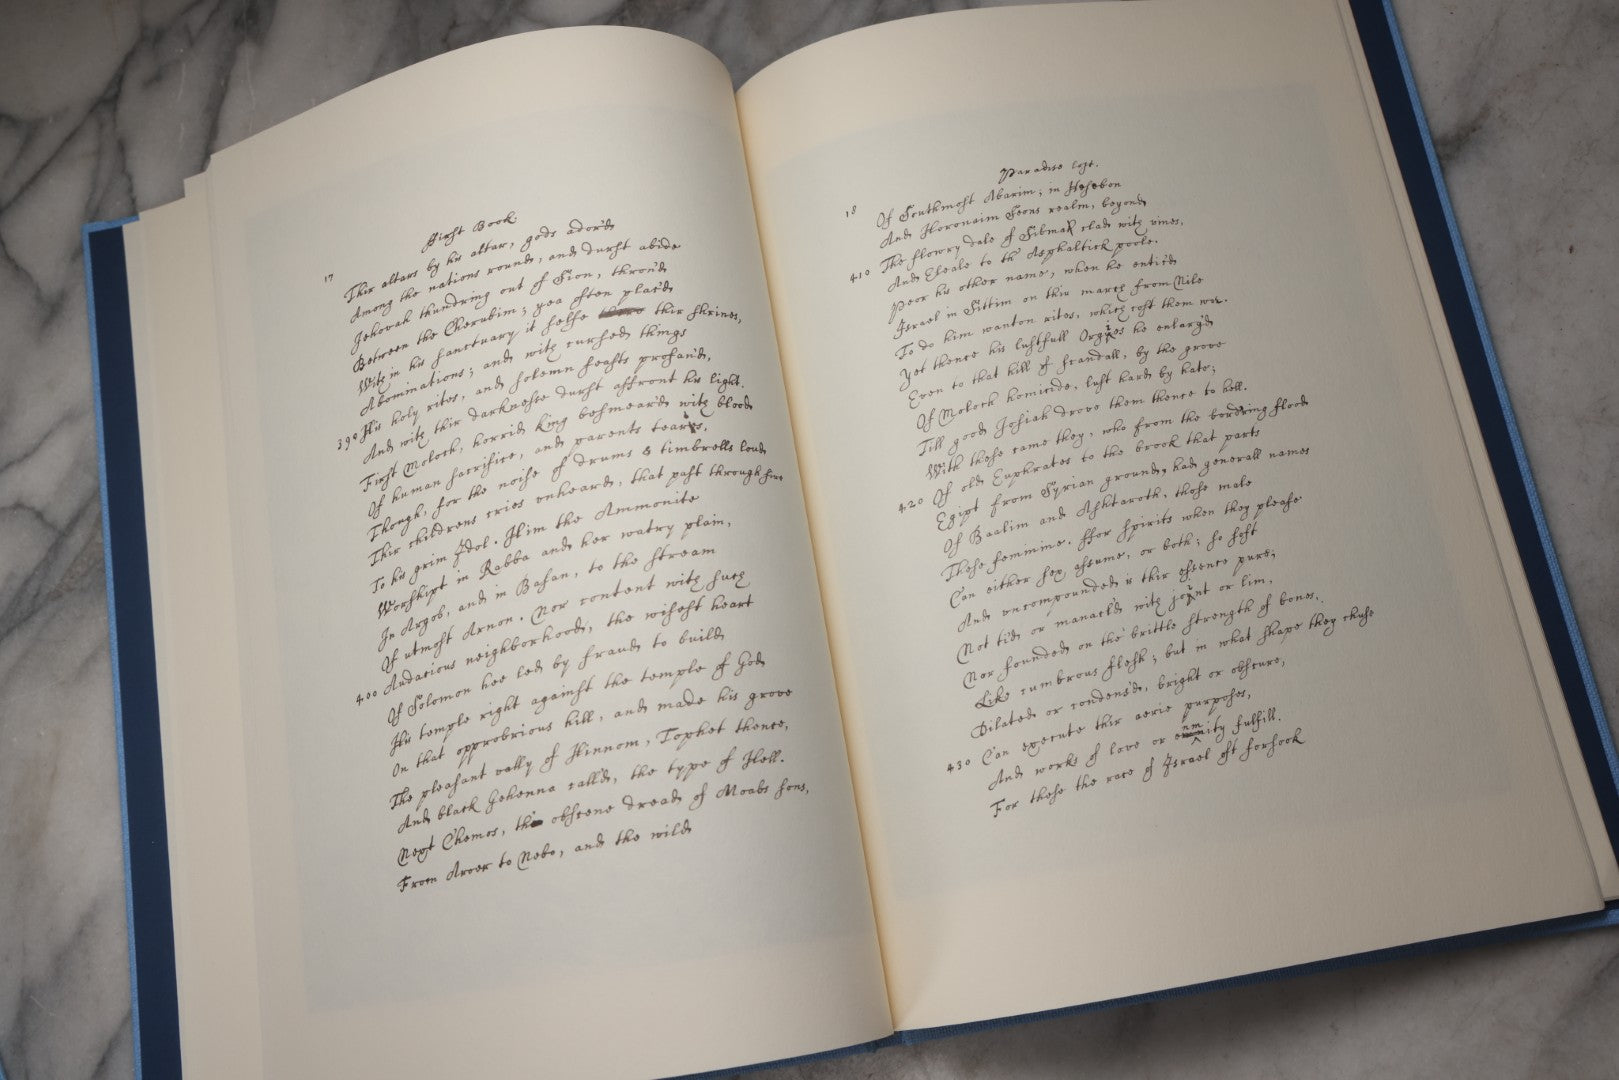 First Book
17
Thir altars by his altar, gods ador'd
Among the nations round, and durst abide
Jehovah thundring out of Sion, thron'd
Between the Cherubim; yea often plac'd
With in his sanctuary it selfe thir shrines,
Abominations; and with cursed things
His holy rites, and solemn feasts profan'd,
390 And with thir darknesse durst affront his light.
First Moloch, horrid king besmear'd with blood
Of human sacrifice, and parents teares,
Though, for the noise of drums & timbrells loud
Thir childrens cries unheard, that past through fire
To his grim Idol. Him the Ammonite
Worshipt in Rabba and her watry plain,
In Argob, and in Basan, to the stream
Of utmost Arnon. Nor content with such
Audacious neighborhood, the wisest heart
400 Of Solomon hee led by fraud to build
His temple right against the temple of God
On that opprobrious hill, and made his grove
The pleasant vally of Hinnom, Tophet thence,
And black Gehenna call'd, the type of Hell.
Next Chemos, th' obscene dread of Moabs sons,
From Aroer to Nebo, and the wild
Paradise lost.
18
Of Southmost Abarim; in Hesebon
And Horonaim Seons realm, beyond
The flowry dale of Sibmah clad with vines,
410 And Eleale to th' Asphaltick poole.
Peor his other name, when he entic'd
Israel in Sittim on thir march from Nile
To do him wanton rites, which cost them woe.
Yet thence his lustfull Orgies he enlarg'd
Even to that hill of scandall, by the grove
Of Moloch homicide, lust hard by hate;
Till good Josiah drove them thence to hell.
With these came they, who from the bordring flood
Of old Euphrates to the brook that parts
420 Egipt from Syrian ground, had generall names
Of Baalim and Ashtaroth, those male
These feminine. ffor spirits when they please
Can either sex assume, or both; so soft
And uncompounded is thir essence pure;
Not ti'd or manacl'd with joint or lim,
Nor founded on the brittle strength of bones,
Like cumbrous flesh; but in what shape they chuse
Dilated or condens'd, bright or obscure,
Can execute thir aerie purposes,
430 And works of love or enmity fulfill.
For these the race of Israel oft forsook